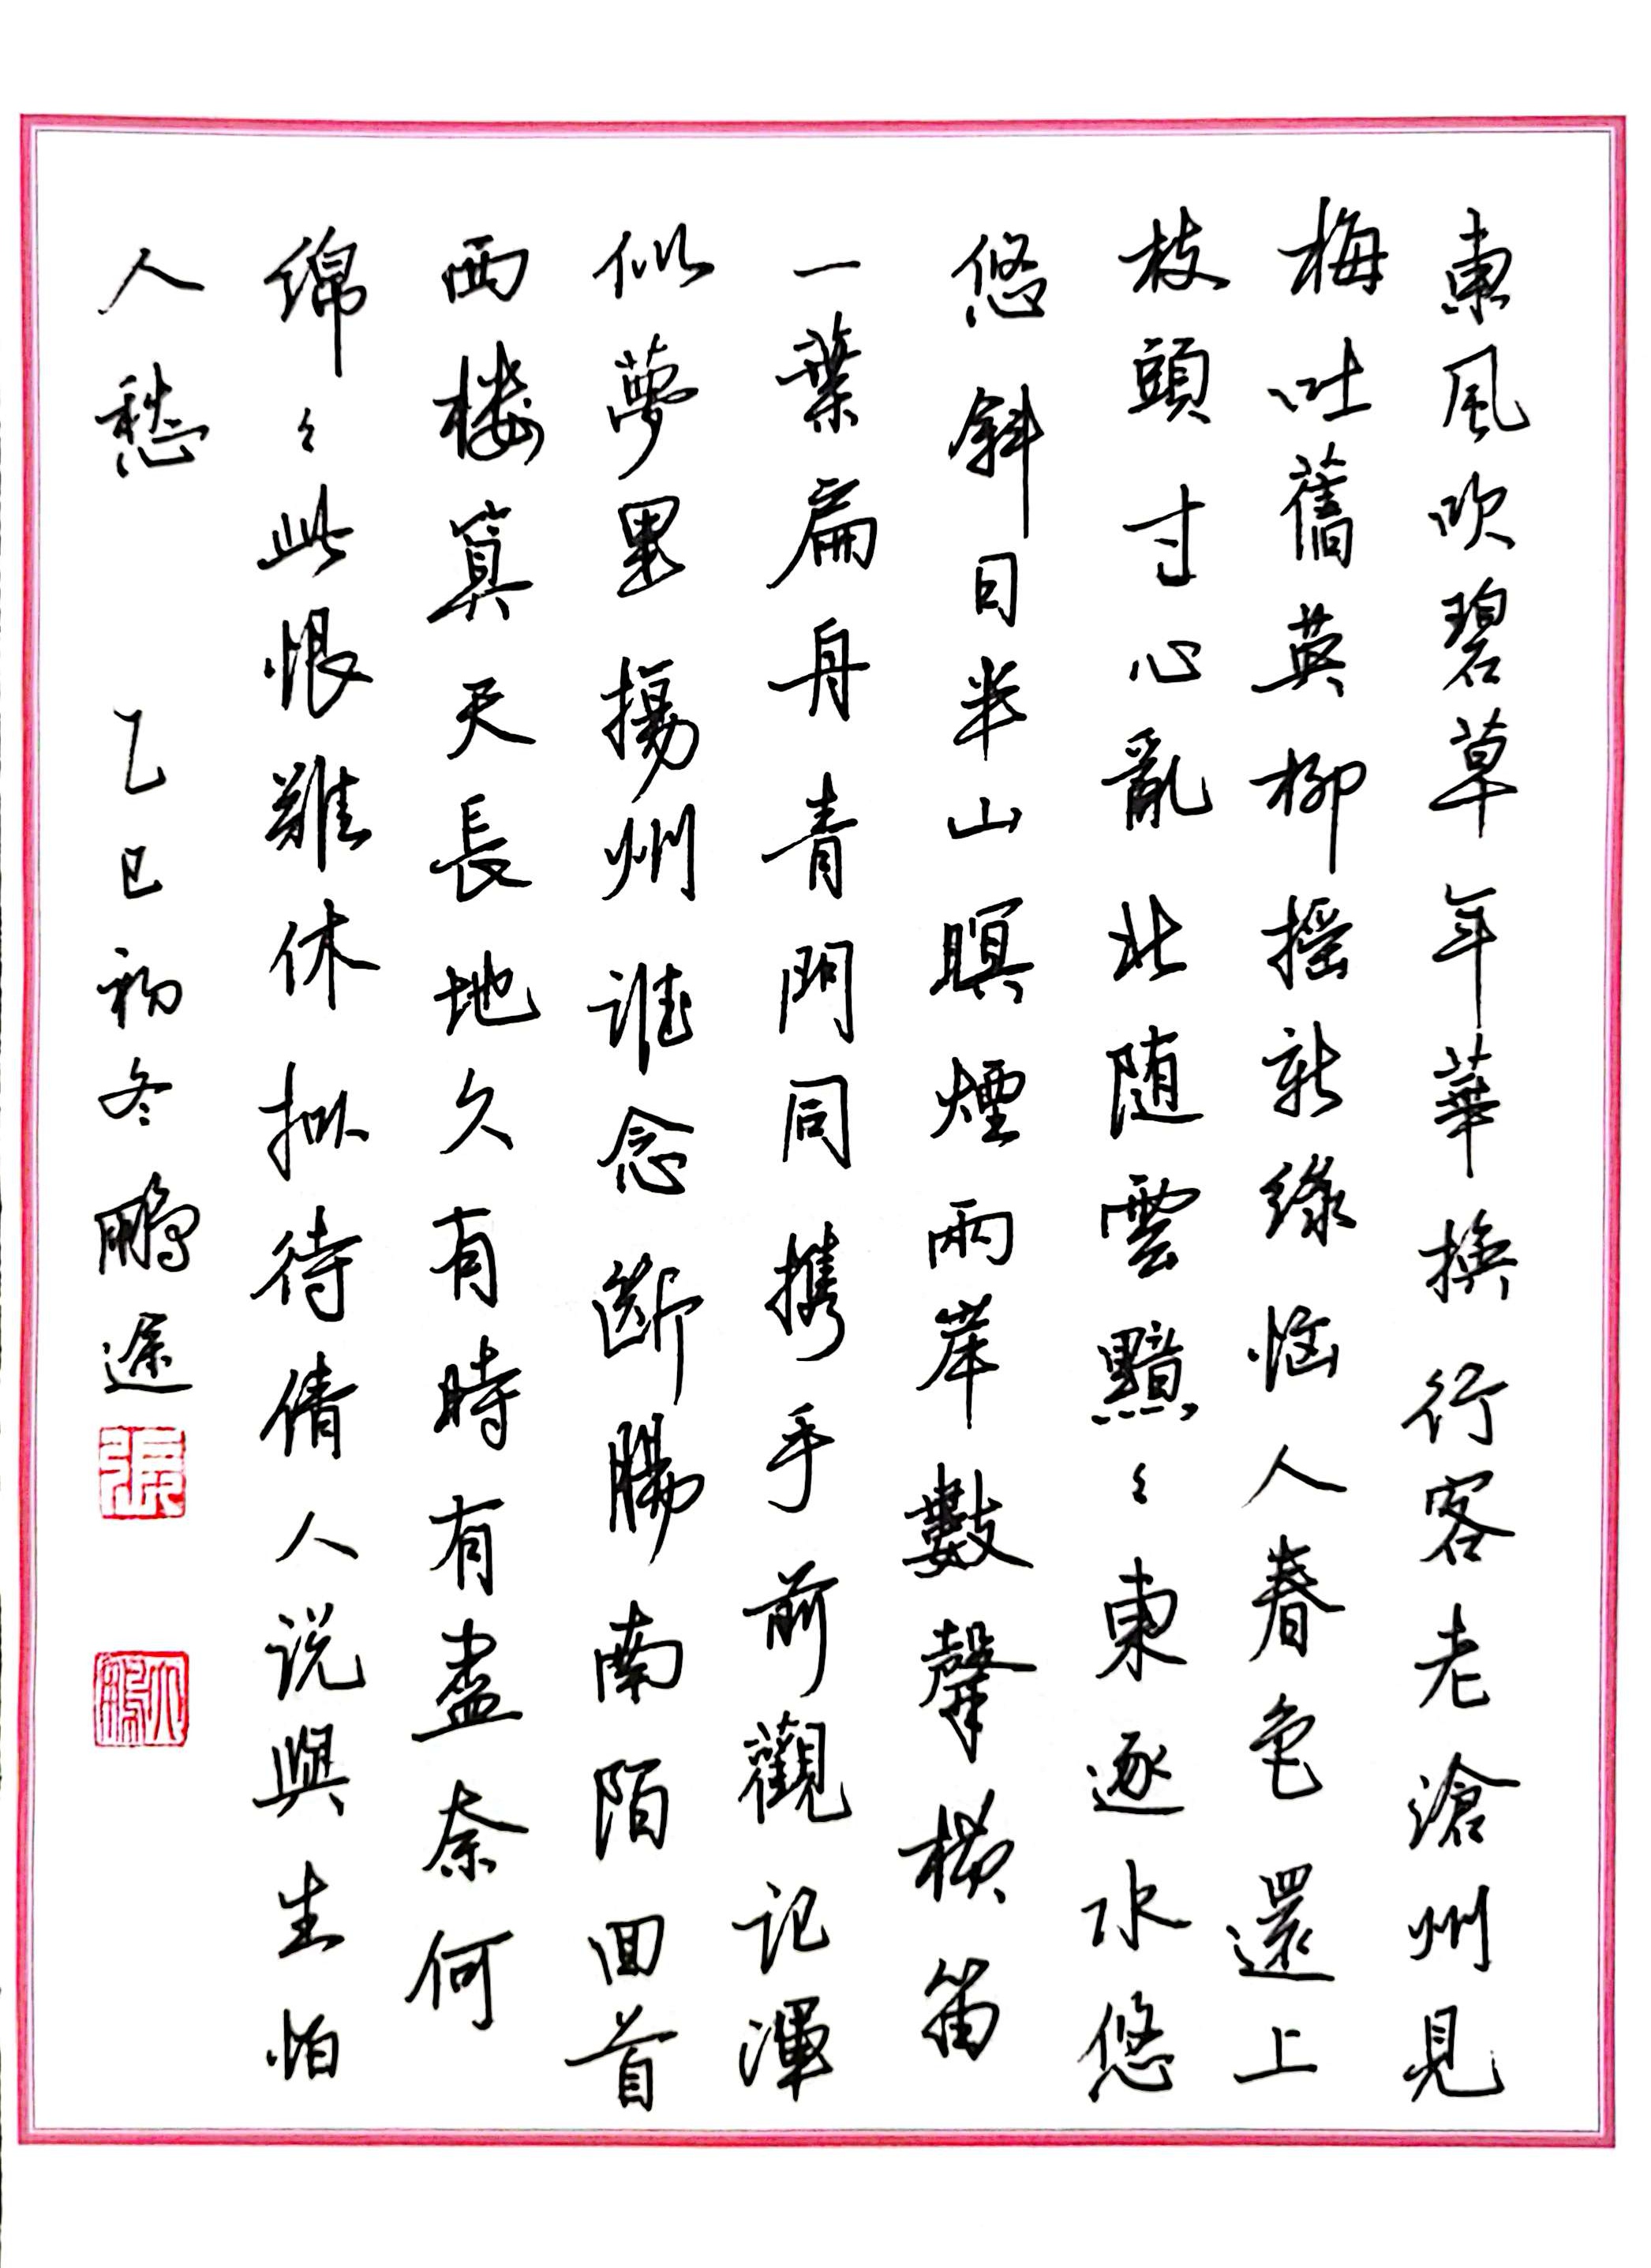 東風吹碧草年華換行客老滄州見
梅吐舊英柳摇新綠惱人春色還上
枝頭寸心亂北随雲黯々東逐水悠
悠斜日半山暝煙兩岸數聲橫笛
一葉扁舟青門同携手前觀記渾
似夢里揚州誰念斷腸南陌回首
西楼算天長地久有時有盡奈何
綿々此恨難休拟待倩人說與生怕
人愁 乙巳初冬鵬途
張